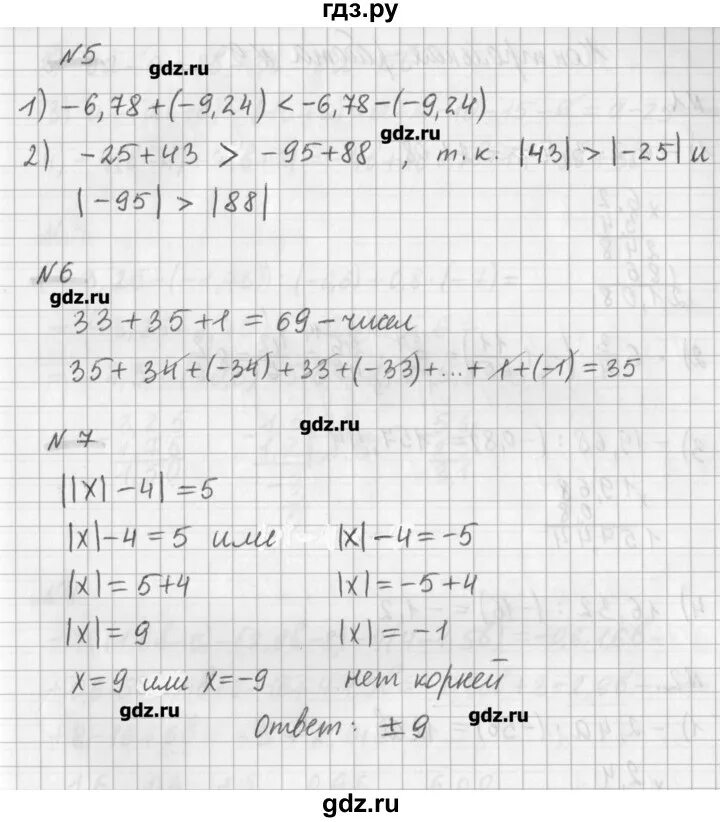 гдз.ру
N5
gdz.ru
1) -6,78+(-9,24) < -6,78-(-9,24)
gdz.ru
2) -25+43 > -95+88 , т.к. |43| > |-25| и
|-95| > |88|
N6
gdz.ru
33+35+1 = 69 - чисел
35+ 34+(-34)+33+(-33)+...+1+(-1)=35
gdz.ru
N 7
||x|-4|=5
|x|-4=5 или |x|-4=-5
|x|=5+4 |x|=-5+4
|x|=9 |x|=-1
x=9 или x=-9 нет корней
gdz.ru
gdz.ru
Ответ: ±9
gdz.ru